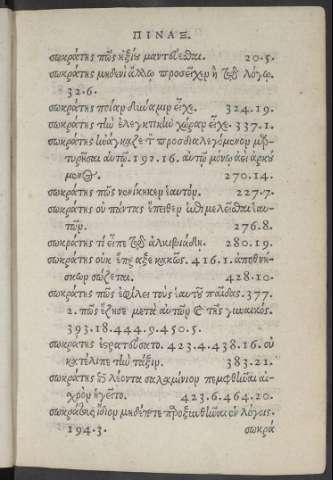 ΠΙΝΑΞ.
σωκράτης πῶς ἠξίου μαντεύεσθαι. 20.5.
σωκράτης μηδενὶ ἄλλῳ προσεῖχεν ἢ τῷ λόγῳ.
32.6.
σωκράτης ποίαν δύναμιν εἶχε. 324.19.
σωκράτης τὴν ἐλεγκτικὴν χώραν εἶχε. 337.1.
σωκράτης ἠνάγκαζε τὸν προσδιαλεγόμενον μαρ-
τυρῆσαι αὐτῷ. 192.16. αὐτῷ μόνῳ ἀεὶ ἀρκού
μενος. 270.14.
σωκράτης πῶς νενίκηκεν ἑαυτόν. 227.7.
σωκράτης οὐ πάντας ἔπειθεν ἐπιμελεῖσθαι ἑαυ-
τῶν. 276.8.
σωκράτης τί εἶπε τῷ ἀλκιβιάδῃ. 280.19.
σωκράτης οὐκ ἔπραξε κακῶς. 416.1. ἀποθνή-
σκων σώζεται. 428.10.
σωκράτης πῶς ἐφίλει τοὺς ἑαυτοῦ παῖδας. 377.
2. πῶς ἔζησε μετὰ αὐτῶν καὶ τῆς γυναικός.
393.18.444.9.450.5.
σωκράτης ἐστρατεύσατο. 423.4.438.16. οὐ
κατέλιπε τὴν τάξιν. 383.21.
σωκράτης ἐπὶ λέοντα σαλαμίνιον πεμφθῆναι αἰ-
σχρὸν ἡγεῖτο. 423.6.464.20.
σωκράτους ἴδιον μηδέποτε παροξυνθῆναι ἐν λόγοις.
194.3. σωκρά